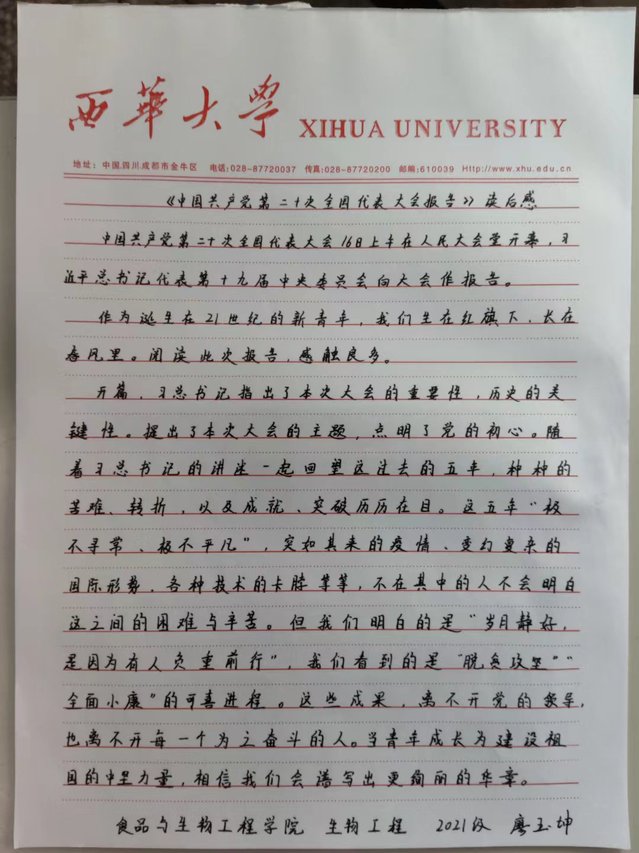 西華大学 XIHUA UNIVERSITY
地址：中国.四川成都市金牛区 电话:028-87720037 传真:028-87720200 邮编:610039 Http://www.xhu.edu.cn
《中国共产党第二十次全国代表大会报告》读后感
中国共产党第二十次全国代表大会16日上午在人民大会堂开幕，习
近平总书记代表第十九届中央委员会向大会作报告。
作为诞生在21世纪的新青年，我们生在红旗下，长在
春风里。阅读此次报告，感触良多。
开篇，习总书记指出了本次大会的重要性，历史的关
键性。提出了本次大会的主题，点明了党的初心。随
着习总书记的讲述一起回望这过去的五年，种种的
苦难、转折，以及成就、突破历历在目。这五年“极
不寻常、极不平凡”，突如其来的疫情、变幻更来的
国际形势，各种技术的卡脖等等，不在其中的人不会明白
这之间的困难与辛苦。但我们明白的是“岁月静好，
是因为有人负重前行”，我们看到的是“脱贫攻坚”“
全面小康”的可喜进程。这些成果，离不开党的领导，
也离不开每一个为之奋斗的人。当青年成长为建设祖
国的中坚力量，相信我们会谱写出更绚丽的华章。
食品与生物工程学院 生物工程 2021级 廖玉坤